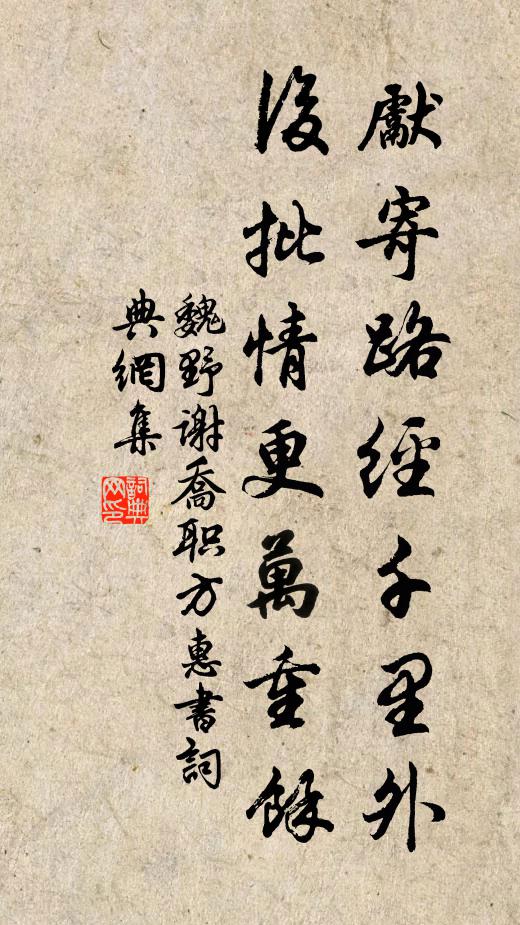 獻寄路經千里外
後批情更萬重餘
魏野谢喬职方惠書詞
典網集
詞典
网印